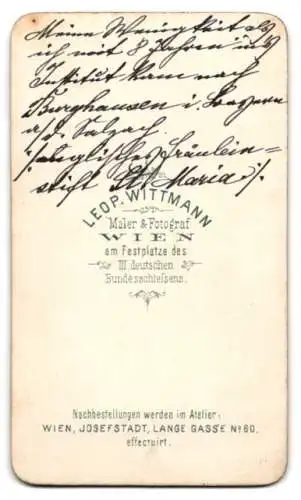 Meine Wenigkeit als
ich mit 8 Jahren ins
Institut kam nach
Burghausen i. Bayern
a/d. Salzach.
/: englisches Fräulein-
stift St. Maria :/.
LEOP. WITTMANN
Maler & Fotograf
WIEN
am Festplatze des
III. deutschen
Bundesschießens.
Nachbestellungen werden im Atelier:
WIEN, JOSEFSTADT, LANGE GASSE No 60.
effectuirt.